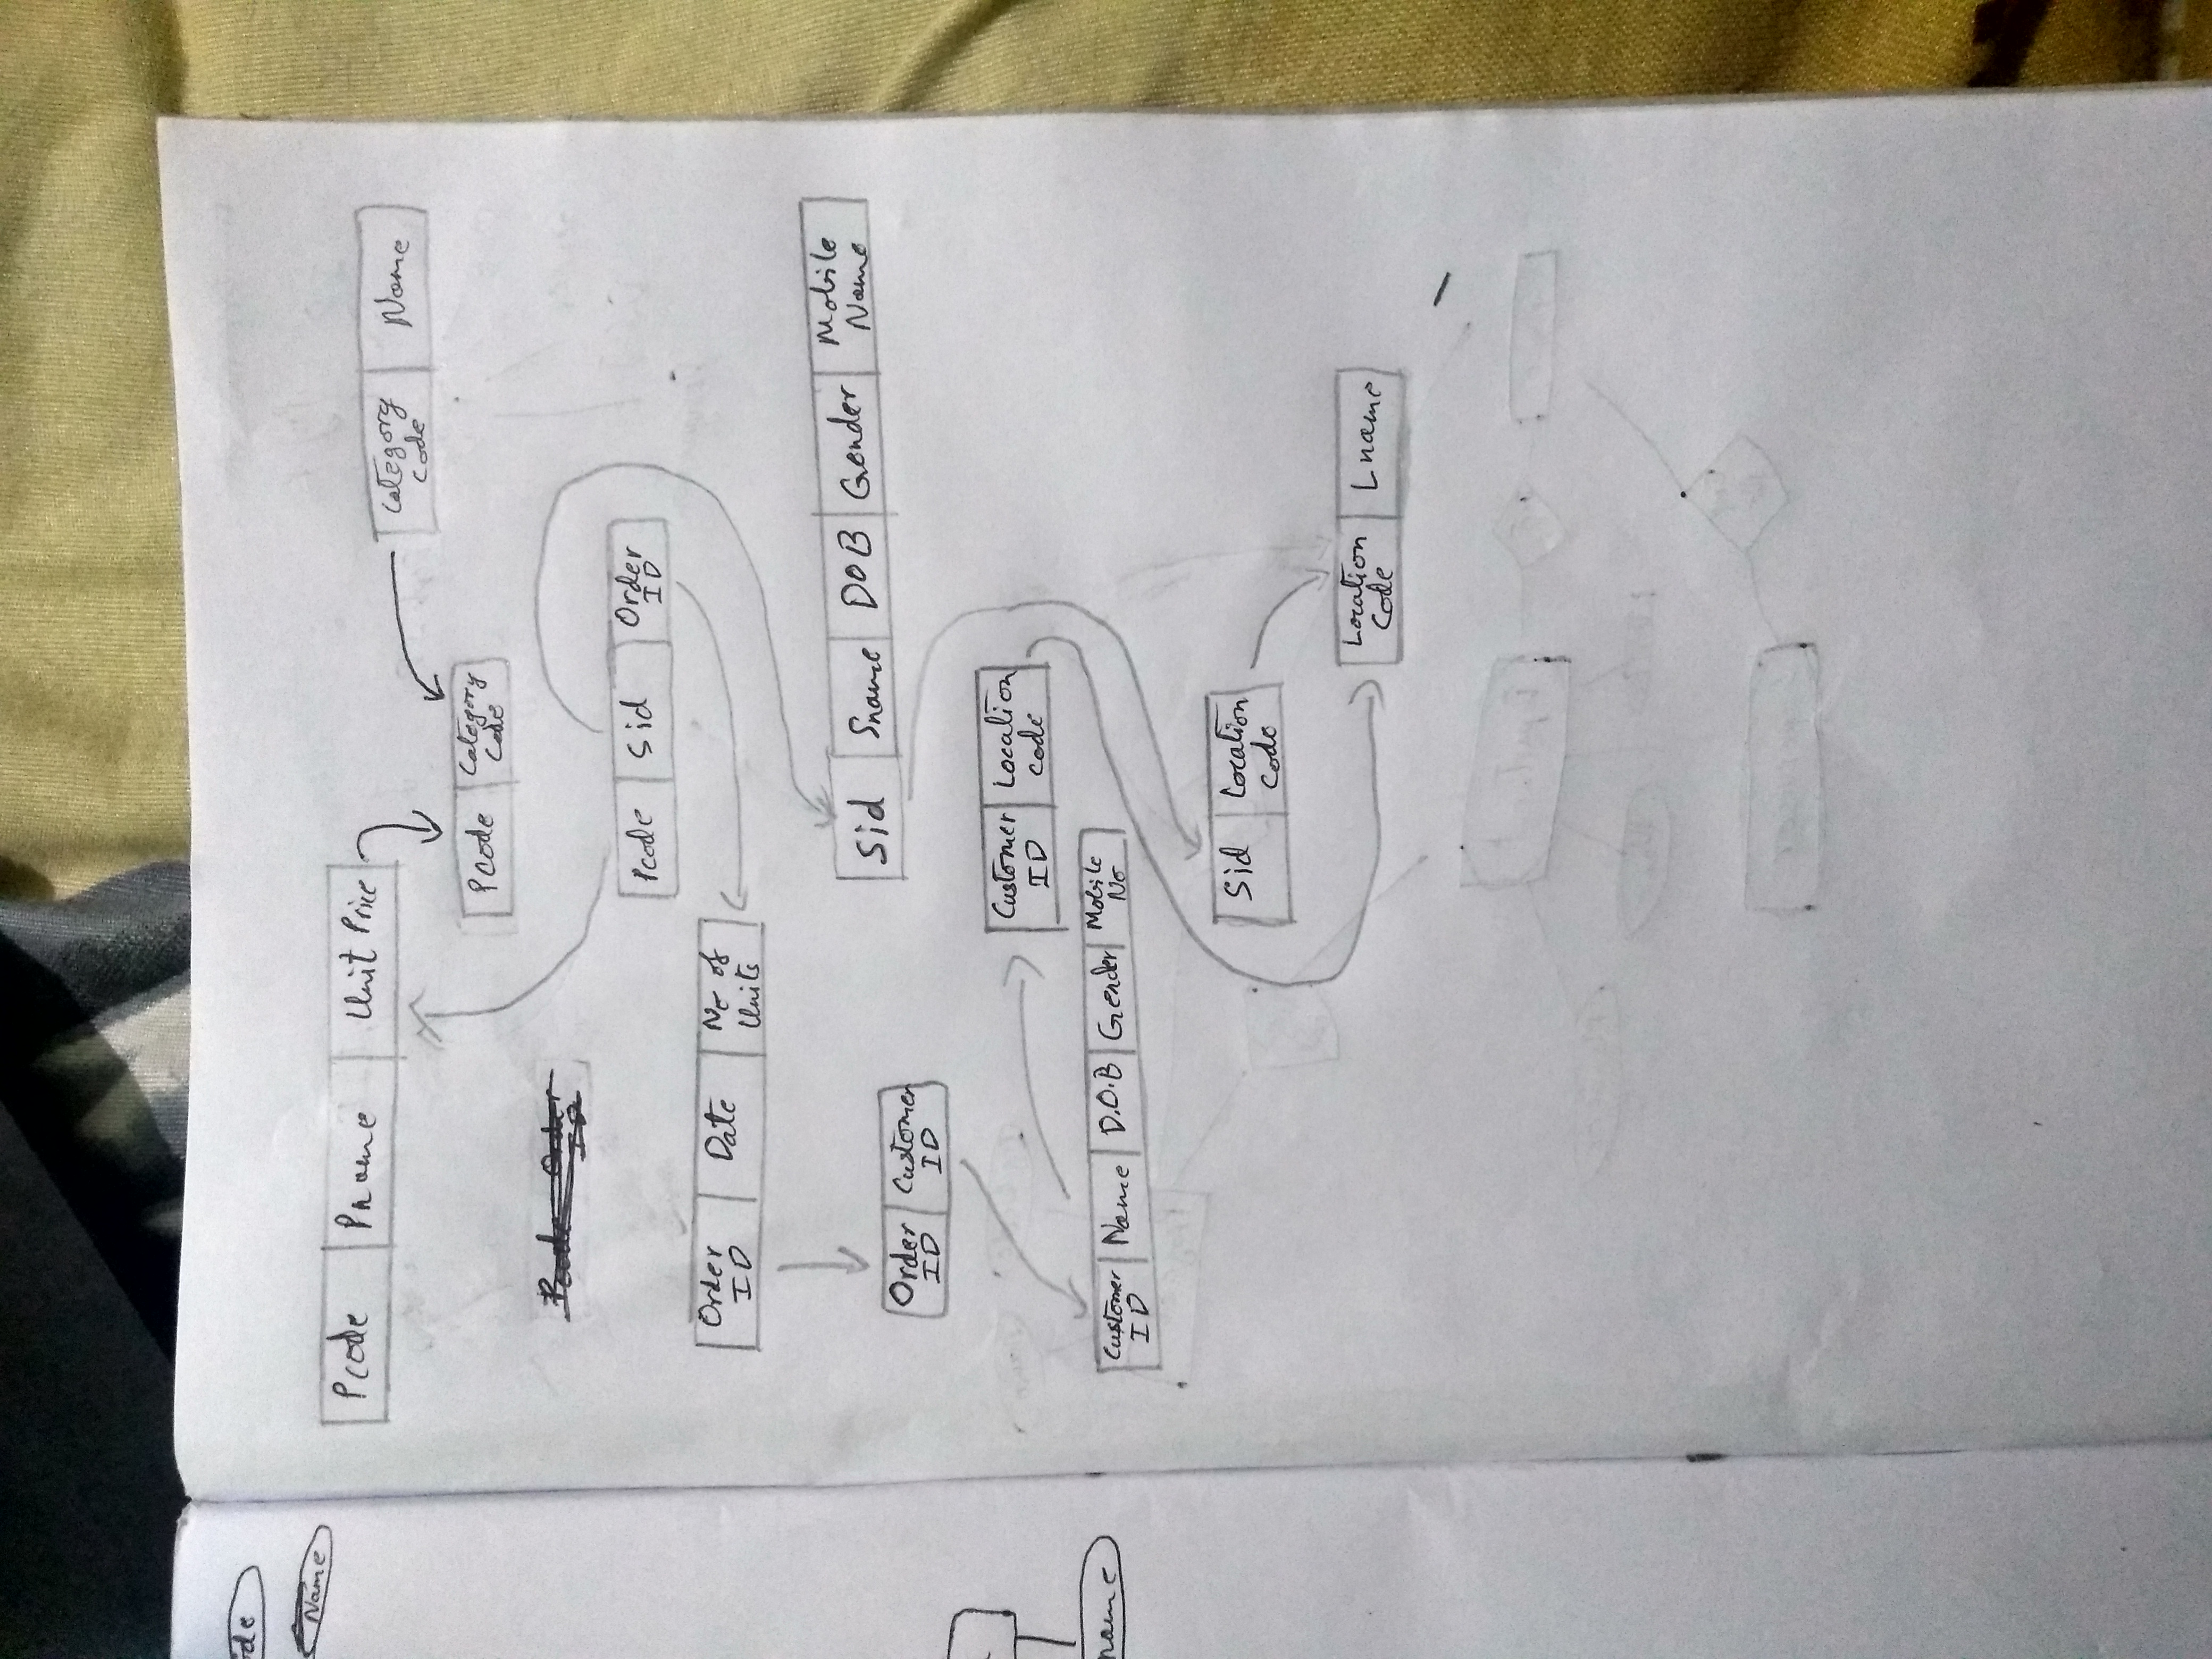 ode
Name
Pcode Pname Unit Price
Category Code Name
Pcode Category Code
Pcode Order ID
Pcode Sid Order ID
Order ID Date No of Units
Sid Sname DOB Gender Mobile Name
Order ID Customer ID
Customer ID Location code
name
Customer ID Name D.O.B Gender Mobile No
Sid Location Code
Location Code Lname